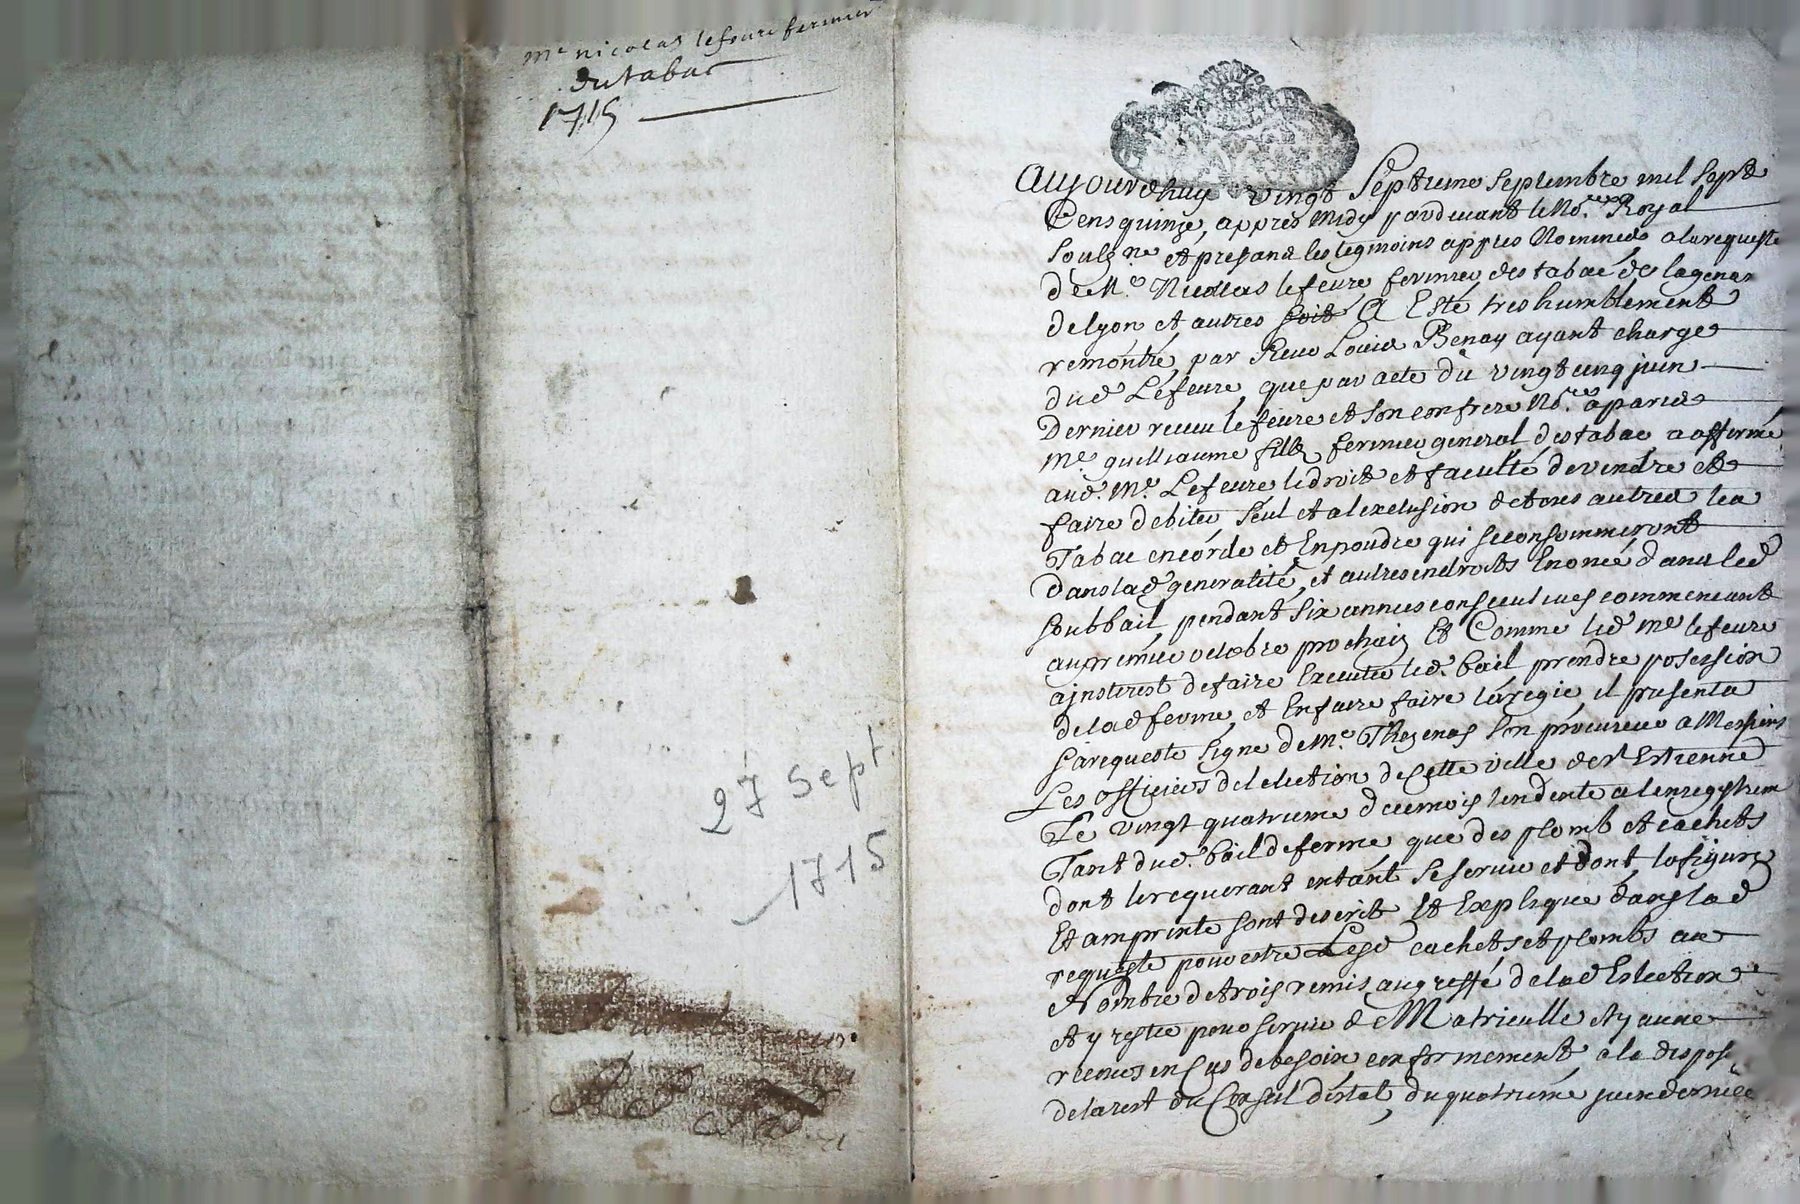 Me nicolas lefeure fermier
du tabac
1715
27 Sept.
1715
Aujourdhuy vingt Septieme septembre mil sept
Cens quinze, appres midy pardevant le Nore Royal
soulzne et presans les tesmoins appres Nommes a la requeste
de Me Nicolas lefeure fermier des tabac de la gener
de lyon et autres soit A Esté tres humblement
remontré par Louis Benay ayant charge
dud Lefeure que par acte du vingt cinq juin
Dernier receu lefeure et son confrere Nore a paris
Me guilliaume filtz fermier general des tabac a affermé
aud. Me Lefeure le droit et faculté de vendre et
faire debiter seul et a lexclusion de tous autres les
Tabac en corde et En poudre qui se consommeront
dans lad generalité, et autres endroits Enoncé dans led
soubbail pendant six annees consecutives commencant
au premier octobre prochain Et Comme led Me lefeure
a jnsterest de faire Executer led. bail prendre posession
de lad ferme, et En faire faire la regie, il presenta
sa requeste signe de Me Thezenas son procureur a Messieurs
Les officiers de lelection de Cette ville de St Estienne
Le vingt quatrieme de ce mois tendente a lenregistrem
Tant dud. bail de ferme que des plomb et cachets
dont le requerant entant se servir et dont la figure
Et amprinte sont descrit Et Explique dans lad
requeste pour estre Lesd cachets et plombs au
Nombre de trois remis au greffe de lad Eslection
et y rester pour servir de Matriculle et y avoir
recours en Cas de besoin conformement a la dispos
de larest du Conseil destat, du quatrieme juin dernier